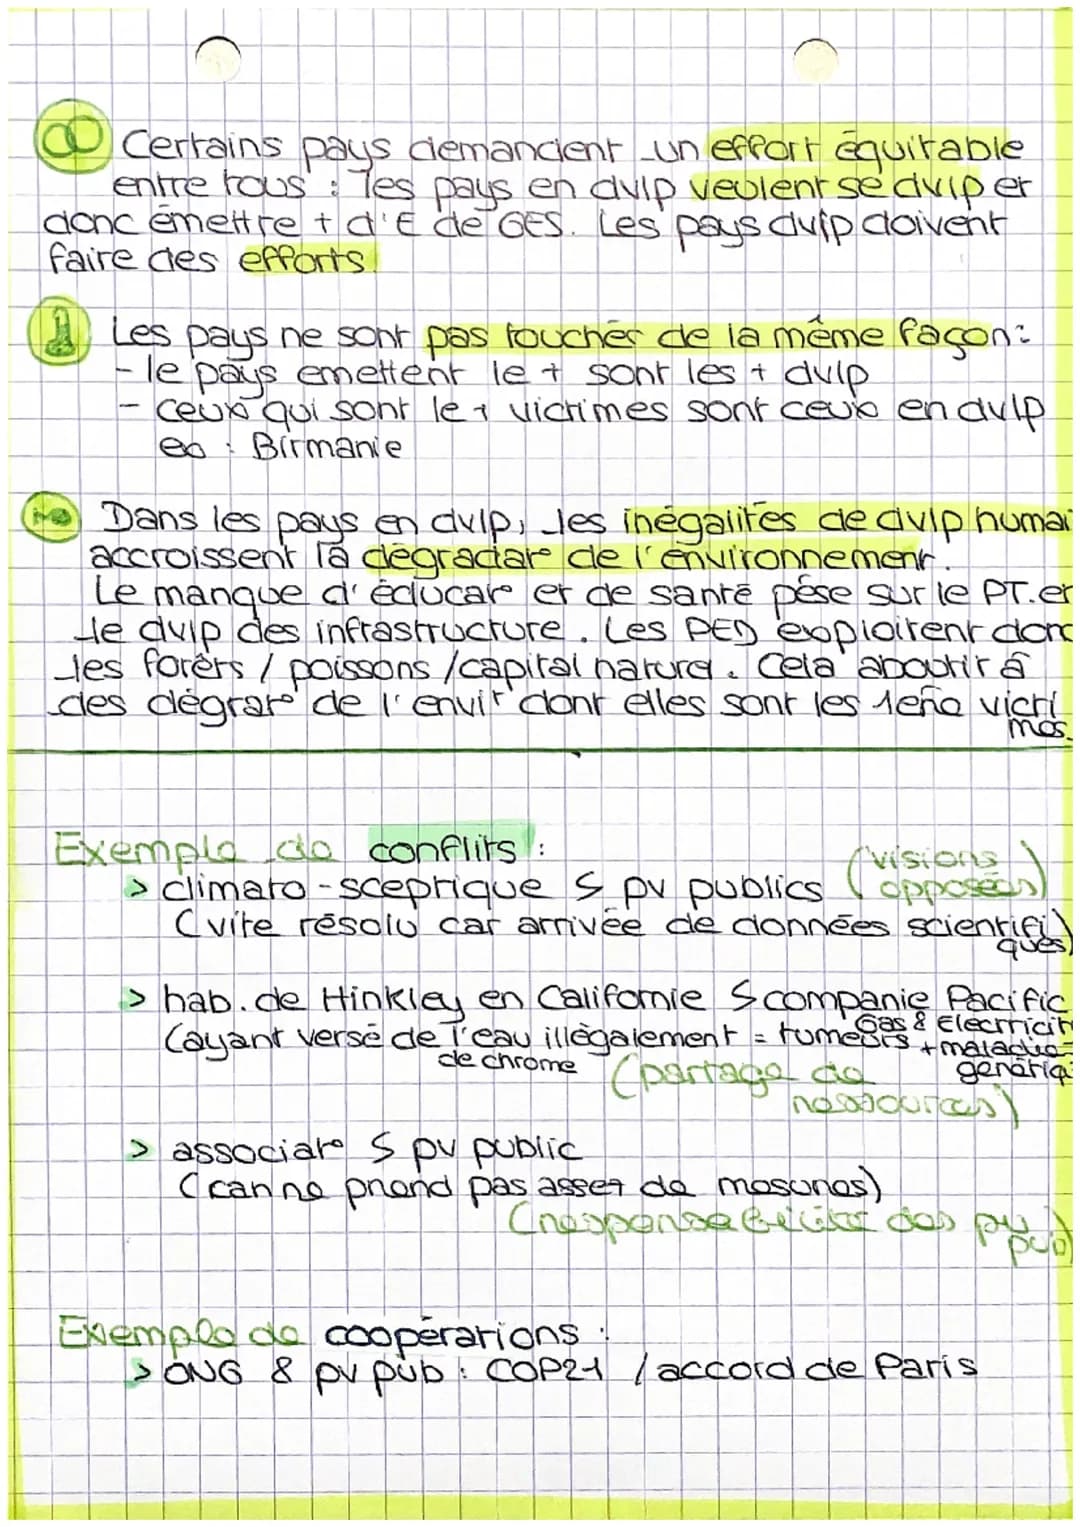 Certains pays demandent un effort équitable
entre tous : les pays en dvlp veulent se dvlp et
donc émettre + d'E de GES. Les pays dvlp doivent
faire des efforts.
Les pays ne sont pas touchés de la même façon :
- le pays emettent le + sont les + dvlp
- ceux qui sont le + victimes sont ceux en dvlp
ex : Birmanie
Dans les pays en dvlp, les inégalités de dvlp humai
accroissent la dégradat° de l'environnement.
Le manque d'éducat° et de santé pèse sur le PT. et
le dvlp des infrastructure. Les PED exploitent donc
les forêts / poissons / capital naturel. Cela aboutit à
des dégrat° de l'envir dont elles sont les 1ère victi
mes.
Exemple de conflits :
> climato-sceptique S pv publics (visions
opposées)
(vite résolu car arrivée de données scientifi
ques)
> hab. de Hinkley en Californie S companie Pacific
Gas & Electricit
(ayant versé de l'eau illégalement = tumeurs + maladie
de chrome génétiq
(partage de
ressources)
> associat° S pv public
(car ne prend pas assez de mesures)
(responsabilité des pv
pub)
Exemple de coopérations :
> ONG & pv pub : COP21 / accord de Paris